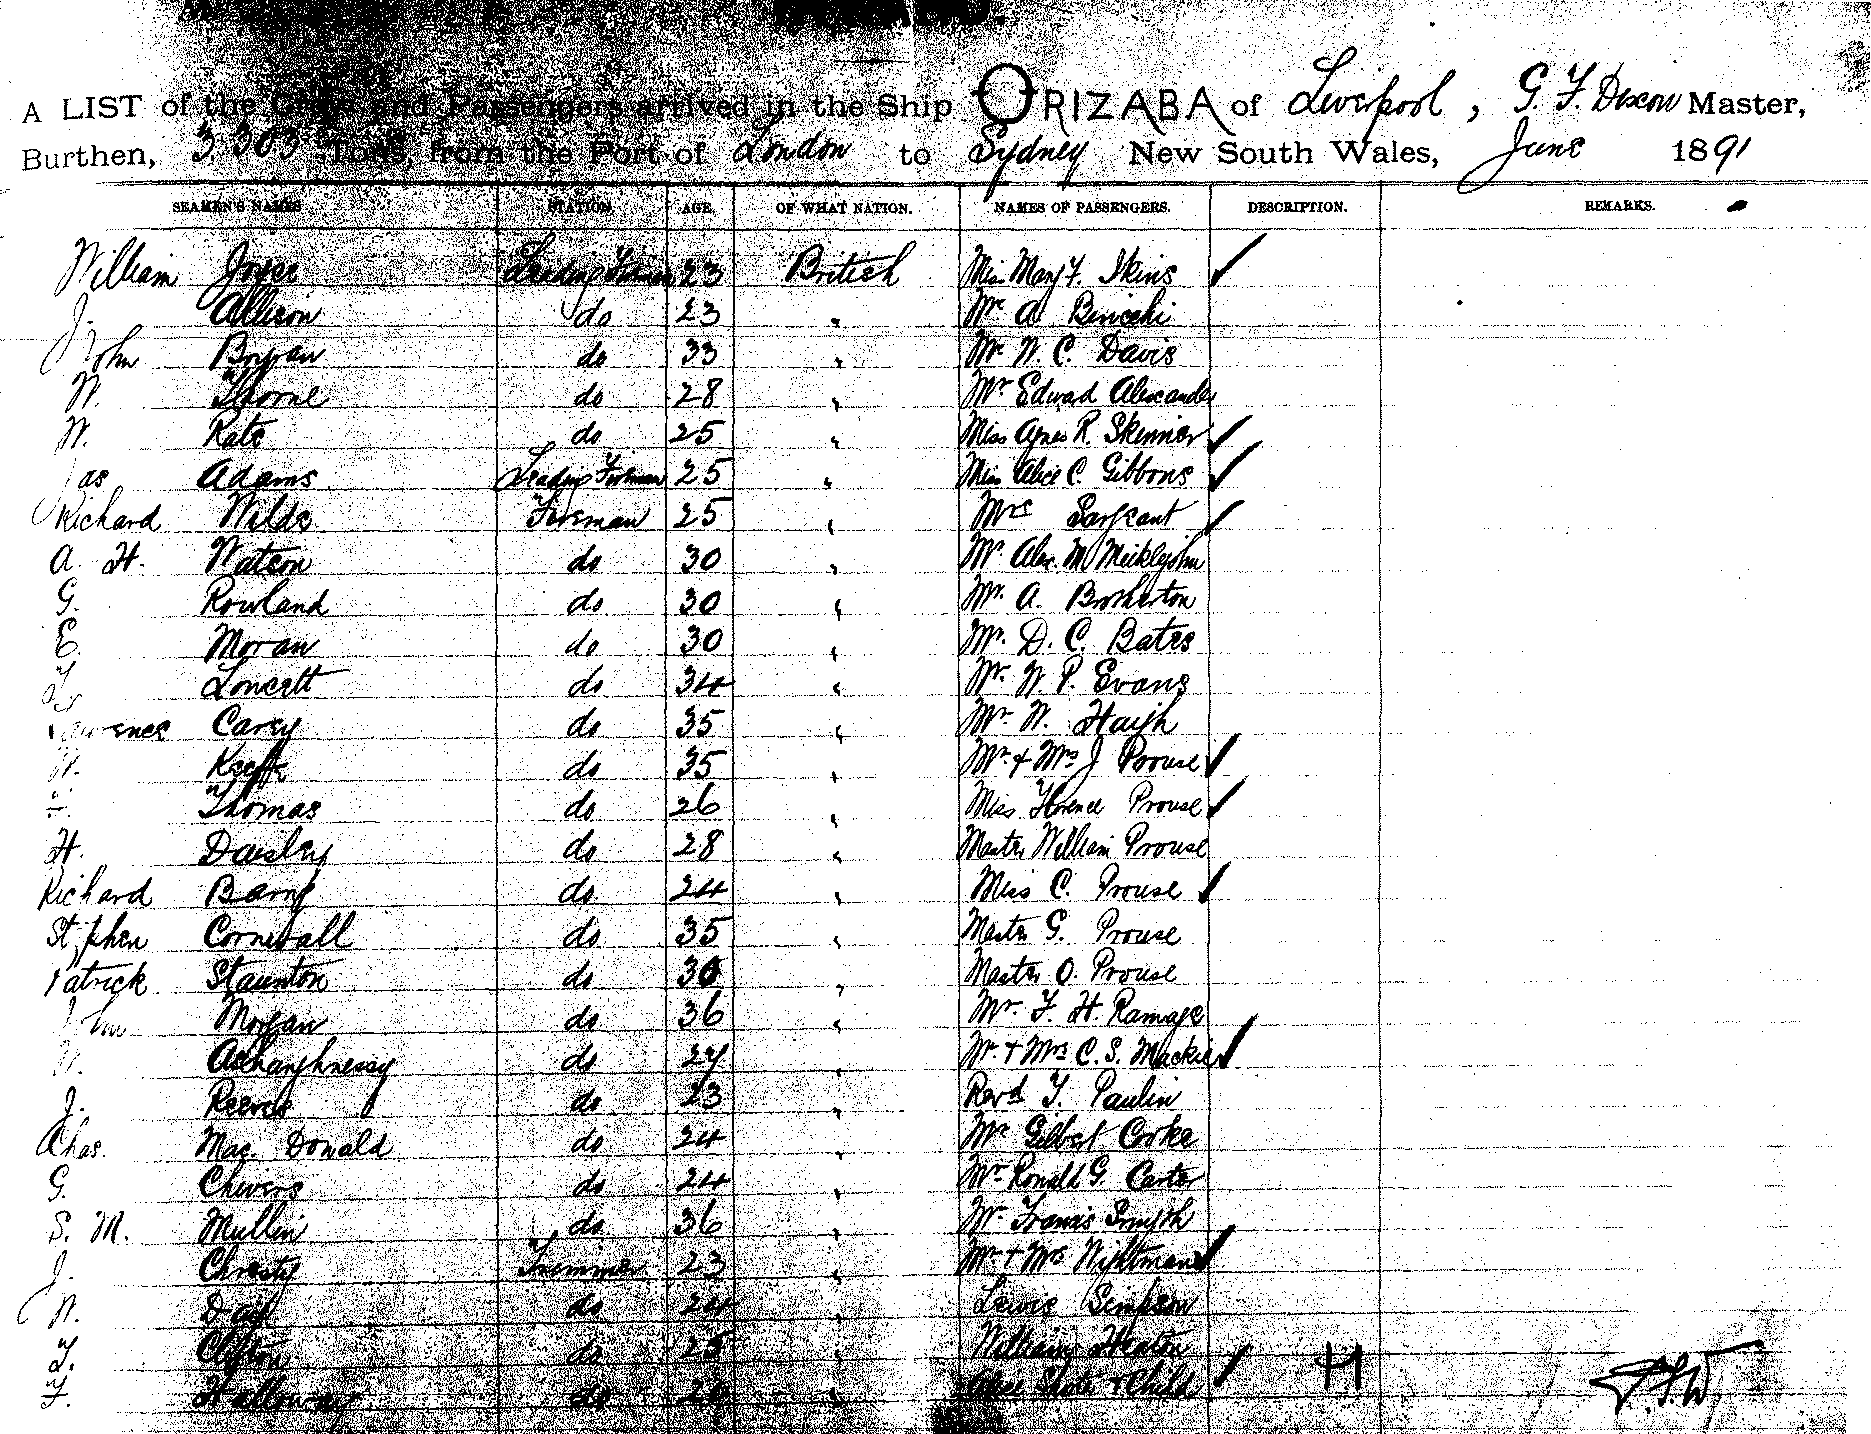 A LIST of the Crew and Passengers arrived in the Ship ORIZABA of Liverpool, G. F. Dixon Master,
Burthen, 3,303 Tons, from the Port of London to Sydney New South Wales, June 1891
SEAMEN'S NAMES STATION. AGE. OF WHAT NATION. NAMES OF PASSENGERS. DESCRIPTION. REMARKS.
William Joyce Leading Fireman 23 British Miss Mary F. Ikins ✓
J. Allison do 23 " Mr A
John do 33 " Mr W. C. Davis
W. Thorne do 28 " Mr Edward Alexander
W. Kate do 25 " Miss Agnes R. Skinner ✓
Jas Adams Leading Fireman 25 " Miss Alice C. Gibbons ✓
Richard Wilde Fireman 25 " Mrs Sargeant ✓
A. H. Watson do 30 " Mr. Alex. M. Micklejohn
G. Rowland do 30 " Mr. A. Brotherton
E. Moran do 30 " Mr. D. C. Bates
do 34 " Mr. W. P. Evans
Lawrence Carey do 35 " Mr W. Haigh
Keeffe do 35 " Mr. & Mrs J Prouse ✓
Thomas do 26 " Miss Florence Prouse ✓
H. Dawley do 28 " Master William Prouse
Richard Barry do 24 " Miss C. Prouse ✓
Stephen Cornwall do 35 " Master G. Prouse
Patrick Staunton do 30 " Master O. Prouse
John Morgan do 36 " Mr. F. H. Ramage
do 27 " Mr. & Mrs C. S. Mackie ✓
J. Reeves do 23 " Revd F. Paulin
Chas. Mac Donald do 24 " Mr Gilbert Cooke
G. Chivers do 24 " Mr Ronald G. Carter
S. M. Mullin do 36 " Mr Francis Smyth
J. Christy Trimmer 23 " Mr & Mrs Wightman ✓
W. do 24 " Lewis Simpson
T. Clifton do 25 " William Heaton
F. Halloway do 26 " Alice Shute & Child ✓ 41